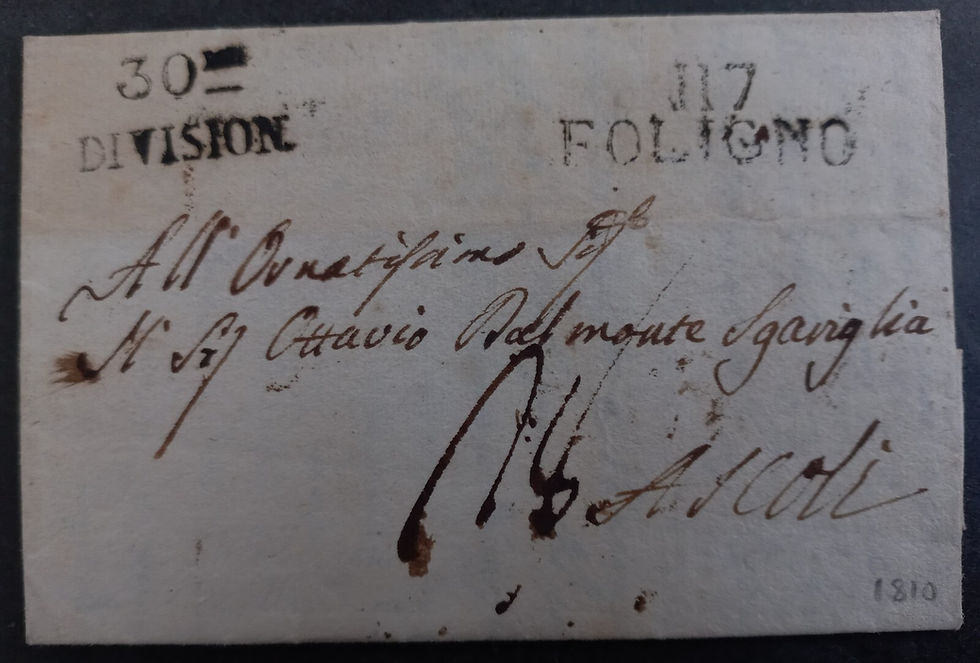 30me
DIVISION
117
FOLIGNO
All' Ornatissimo Sigr
Il Sig Ottavio Dalmonte Sgariglia
Ascoli
1810